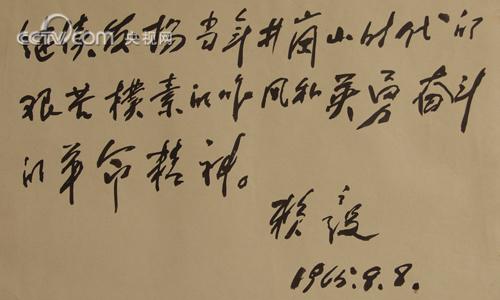 cctv.com 央视网
继续发扬当年井岗山时代的
艰苦樸素的作风和英勇奋斗
的革命精神。
赖毅
1965.9.8.